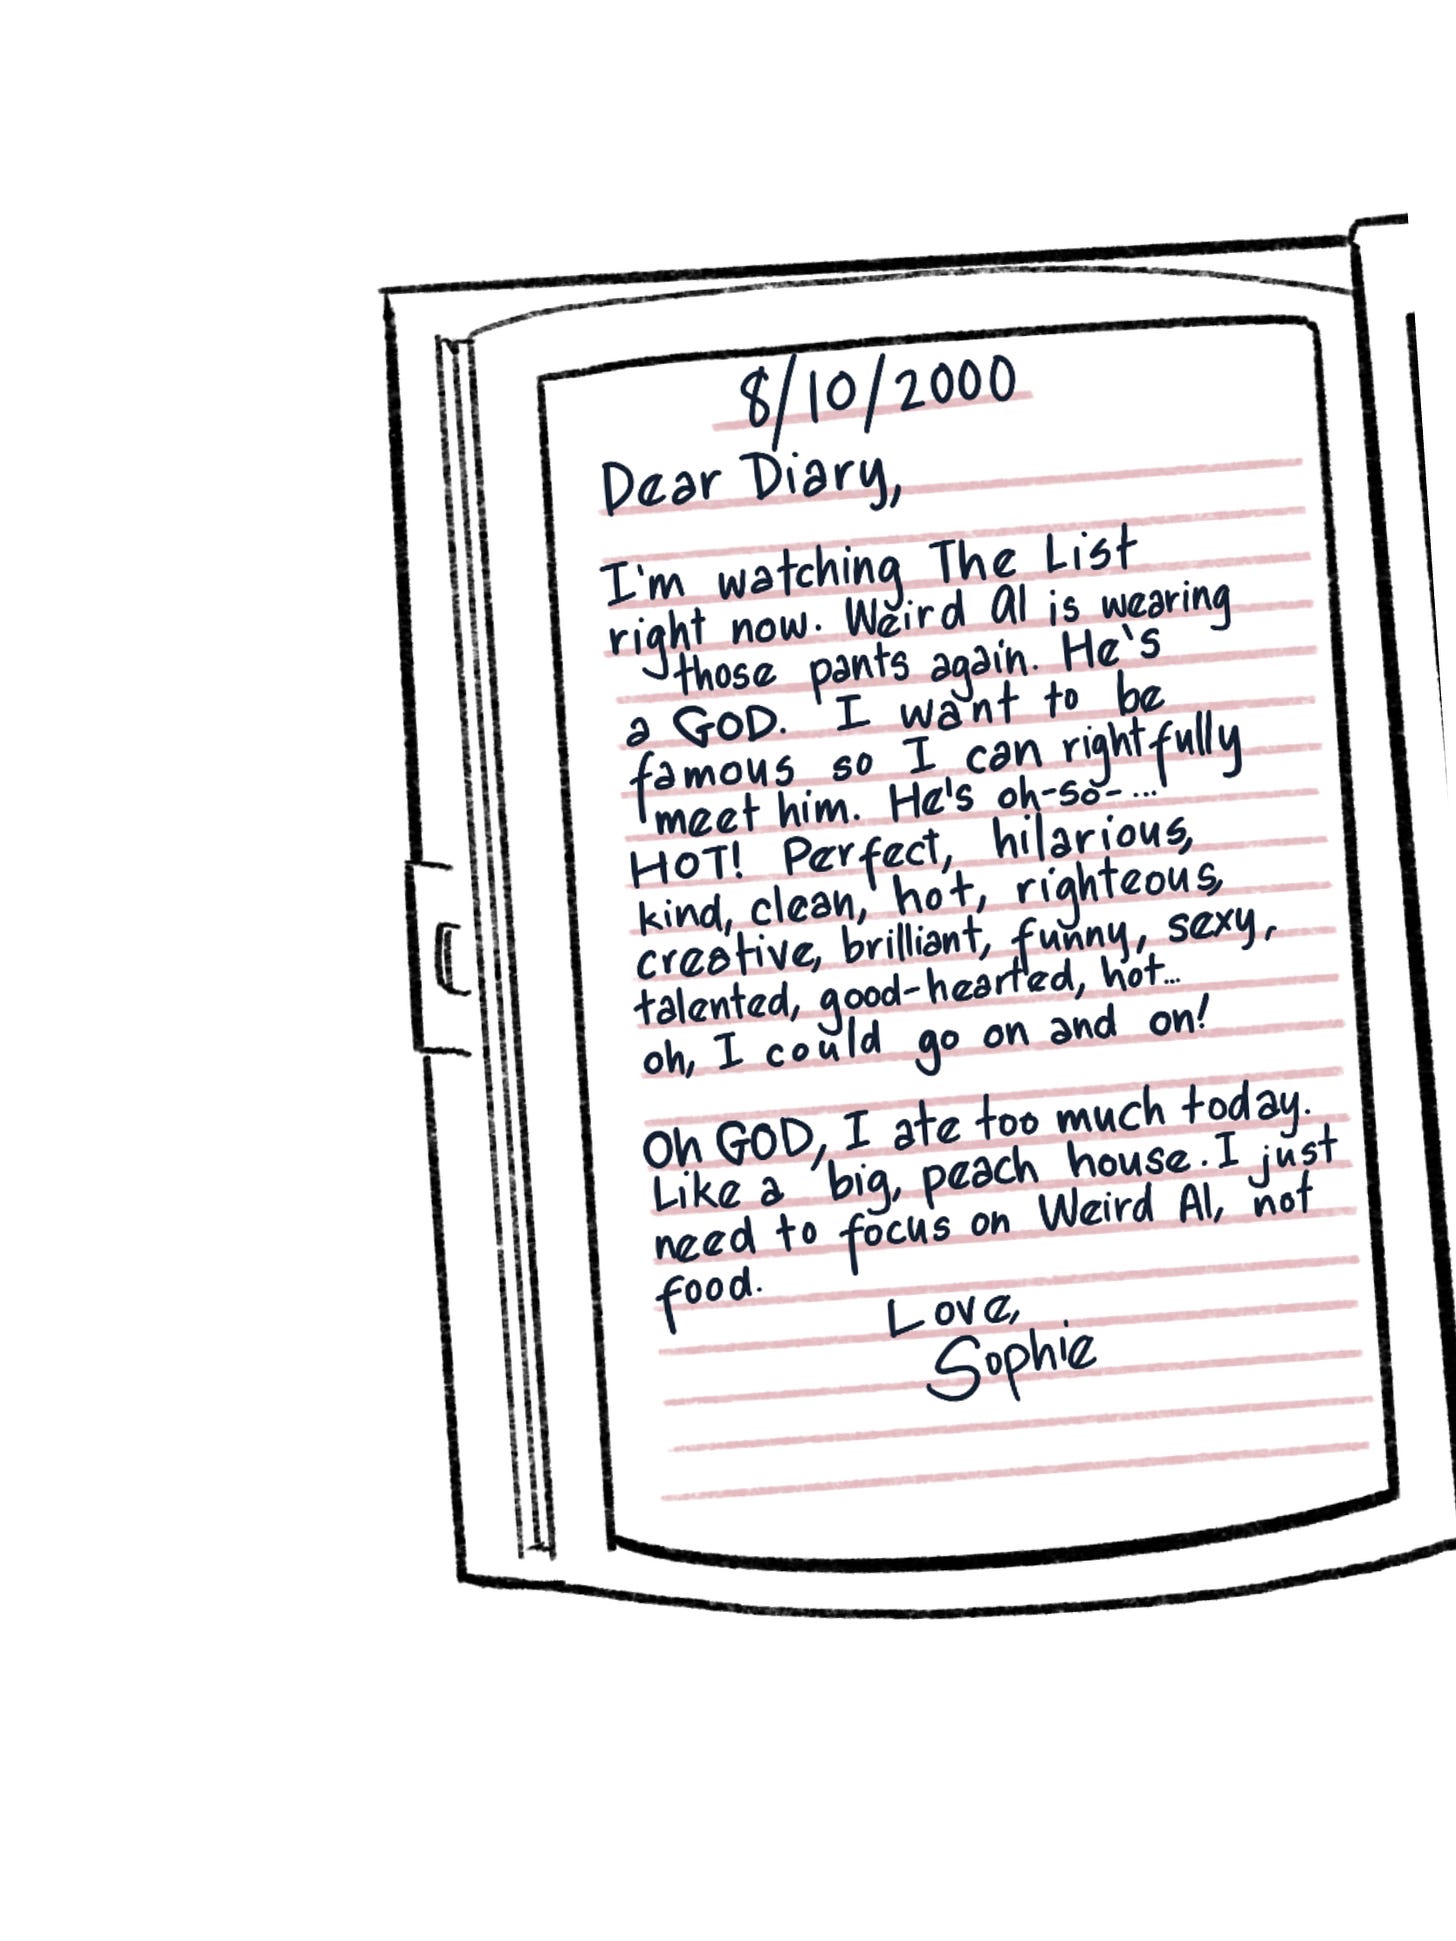 8/10/2000
Dear Diary,
I'm watching The List
right now. Weird Al is wearing
those pants again. He's
a GOD. I want to be
famous so I can rightfully
meet him. He's oh-so-...
HOT! Perfect, hilarious,
kind, clean, hot, righteous,
creative, brilliant, funny, sexy,
talented, good-hearted, hot...
oh, I could go on and on!
Oh GOD, I ate too much today.
Like a big, peach house. I just
need to focus on Weird Al, not
food.
Love,
Sophie